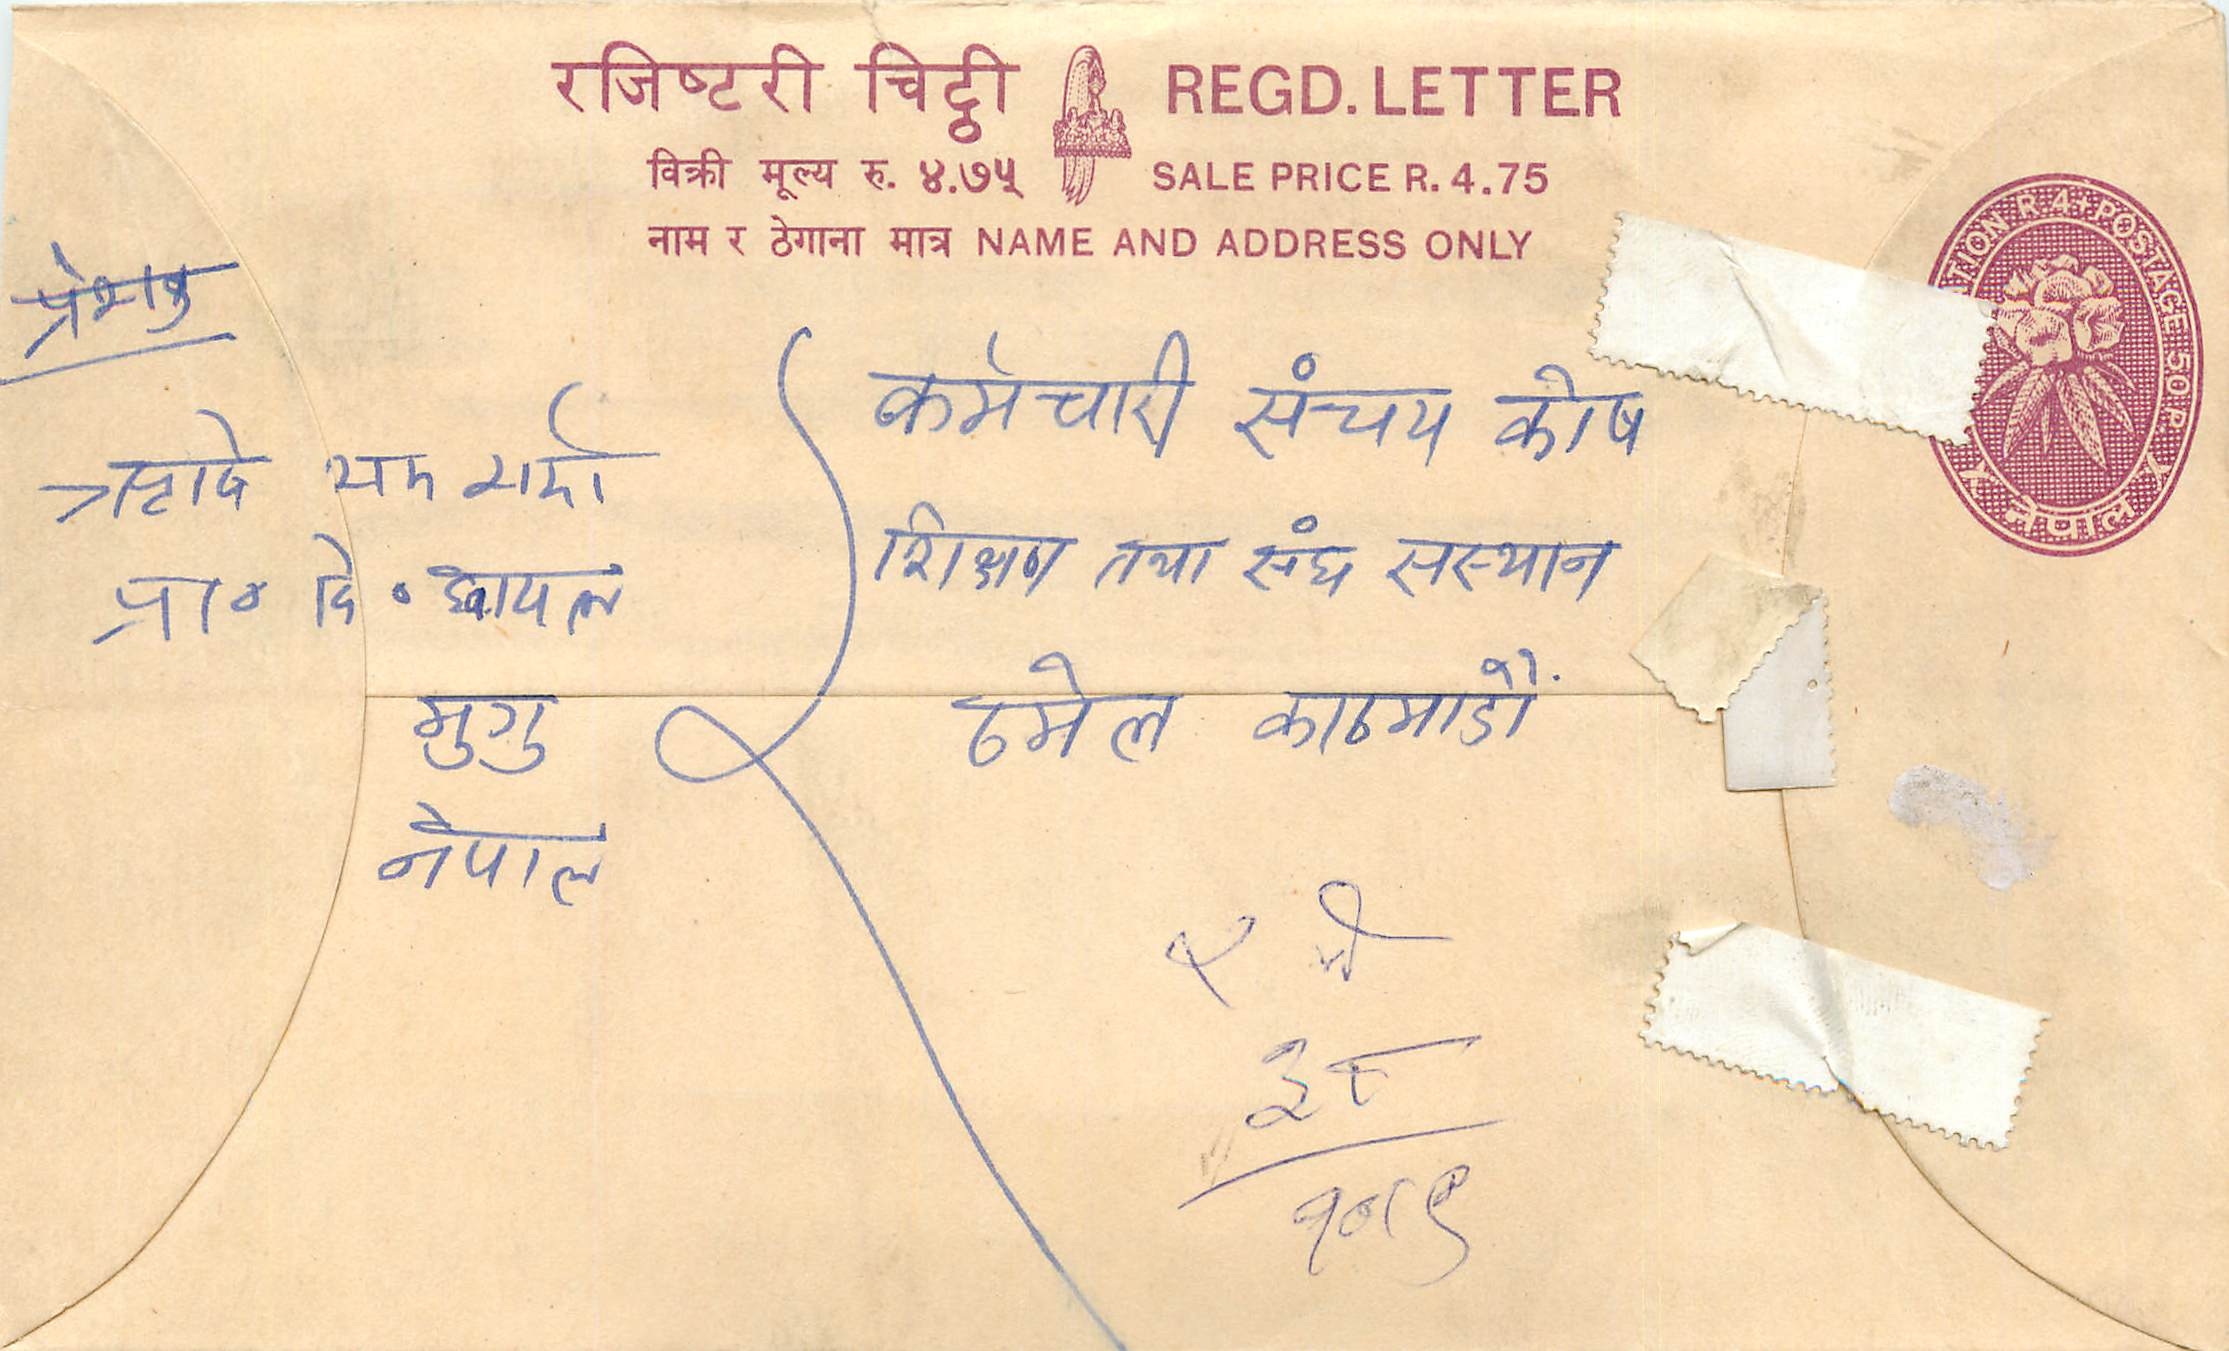 रजिष्टरी चिट्ठी REGD. LETTER
विक्री मूल्य रु. ४.७५ SALE PRICE R. 4.75
नाम र ठेगाना मात्र NAME AND ADDRESS ONLY
ATION R 4+POSTAGE 50 P.
नेपाल
प्रेषक
प्रा० वि०
मुगु
नेपाल
कर्मचारी संचय कोष
शिक्षण तथा संघ सस्थान
ठमेल काठमाडौं.